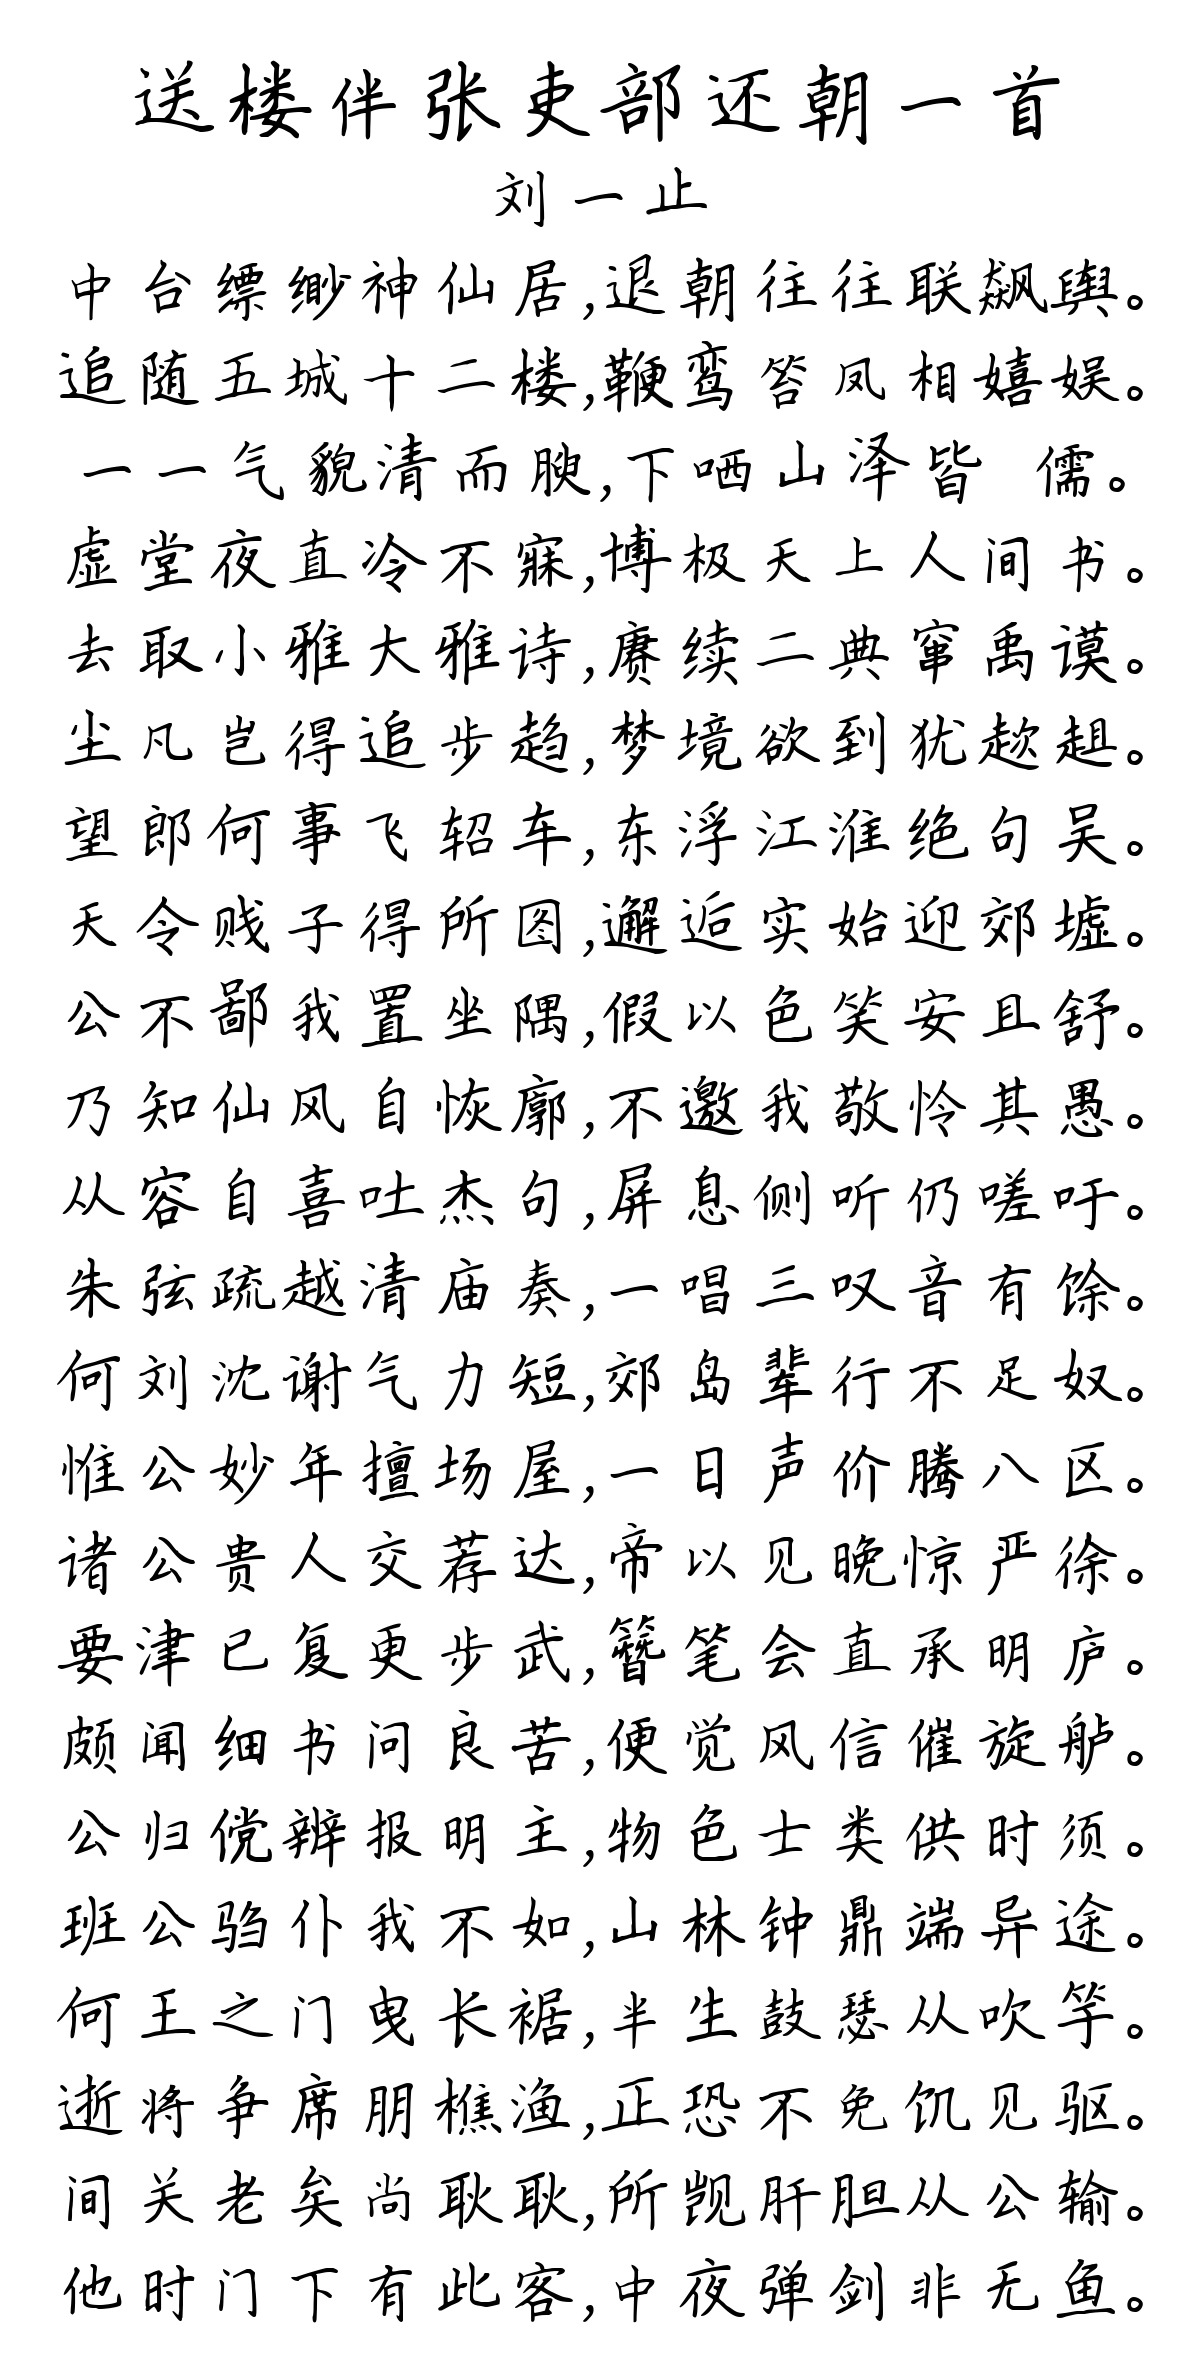 送楼伴张吏部还朝一首
刘一止
中台缥缈神仙居,退朝往往联飙舆。
追随五城十二楼,鞭鸾笞凤相嬉娱。
一一气貌清而腴,下哂山泽皆 儒。
虚堂夜直冷不寐,博极天上人间书。
去取小雅大雅诗,赓续二典窜禹谟。
尘凡岂得追步趋,梦境欲到犹趑趄。
望郎何事飞轺车,东浮江淮绝句吴。
天令贱子得所图,邂逅实始迎郊墟。
公不鄙我置坐隅,假以色笑安且舒。
乃知仙风自恢廓,不邀我敬怜其愚。
从容自喜吐杰句,屏息侧听仍嗟吁。
朱弦疏越清庙奏,一唱三叹音有馀。
何刘沈谢气力短,郊岛辈行不足奴。
惟公妙年擅场屋,一日声价腾八区。
诸公贵人交荐达,帝以见晚惊严徐。
要津已复更步武,簪笔会直承明庐。
颇闻细书问良苦,便觉风信催旋舻。
公归傥辨报明主,物色士类供时须。
班公驺仆我不如,山林钟鼎端异途。
何王之门曳长裾,半生鼓瑟从吹竽。
逝将争席朋樵渔,正恐不免饥见驱。
间关老矣尚耿耿,所觊肝胆从公输。
他时门下有此客,中夜弹剑非无鱼。